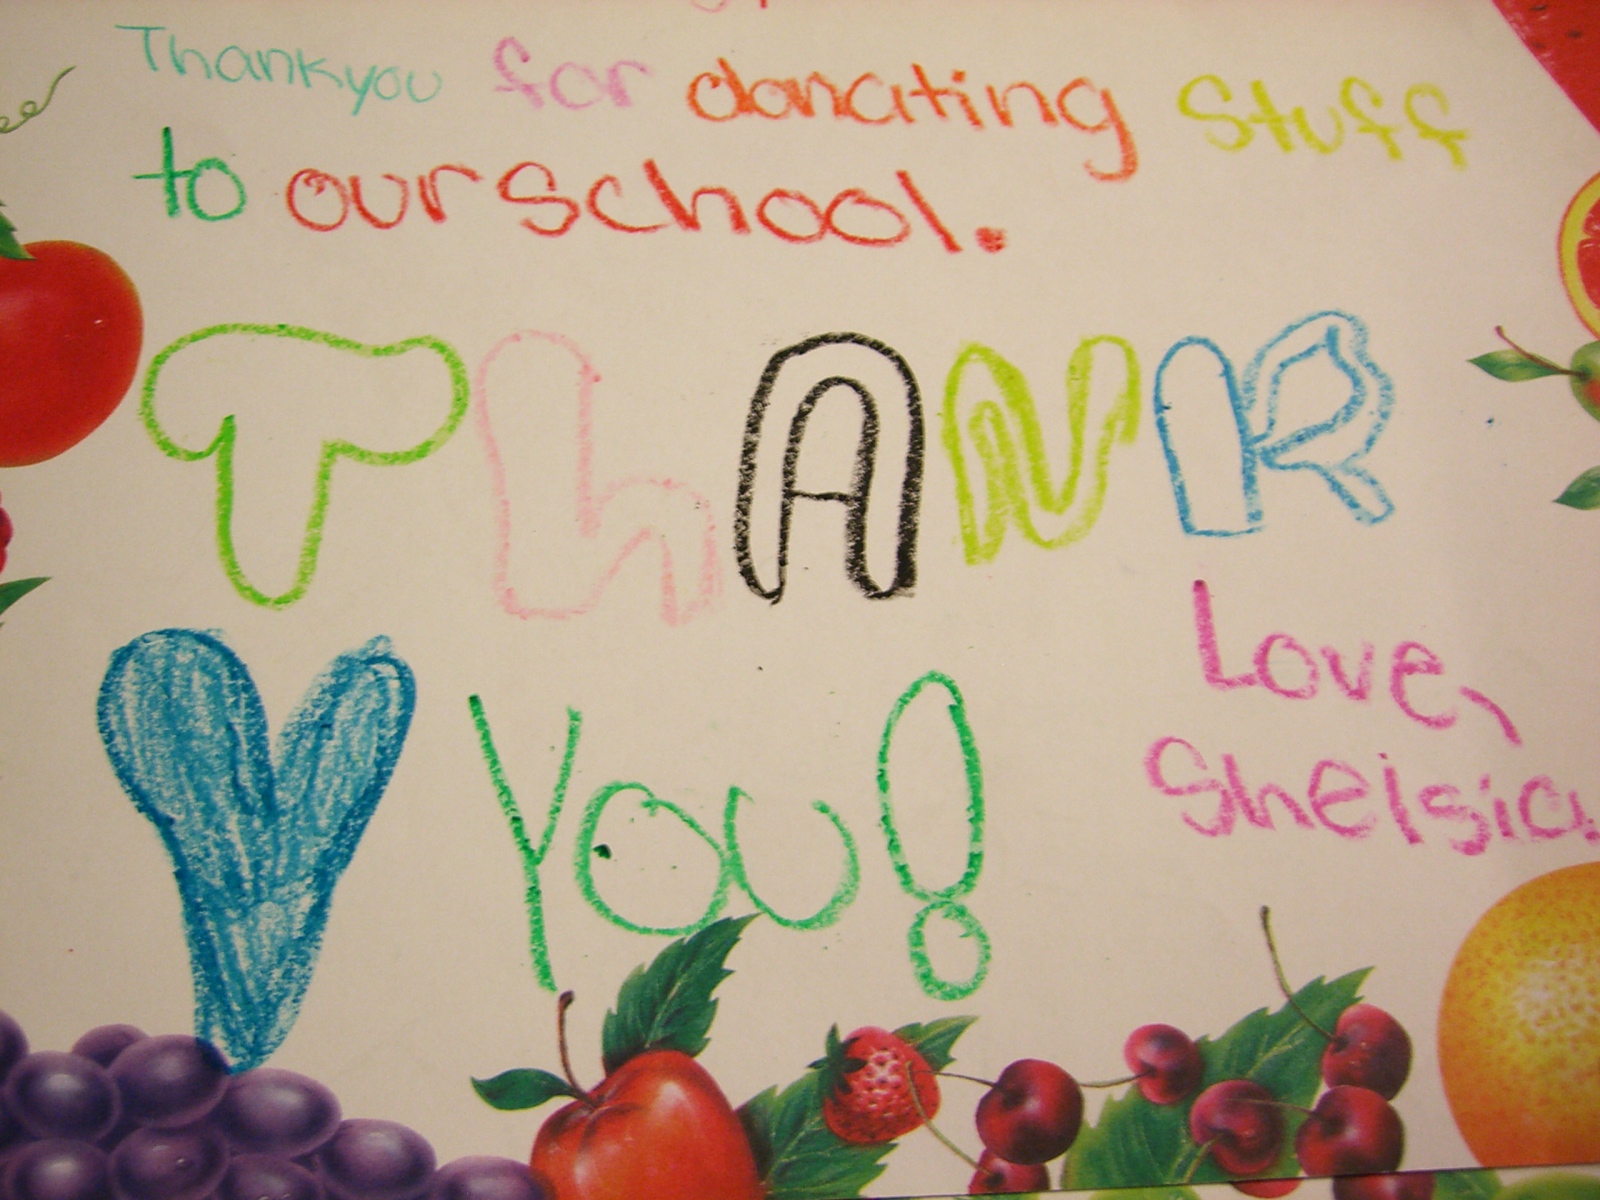 Thankyou for donating Stuff
to our school.
ThANK
You!
Love,
Shelsia